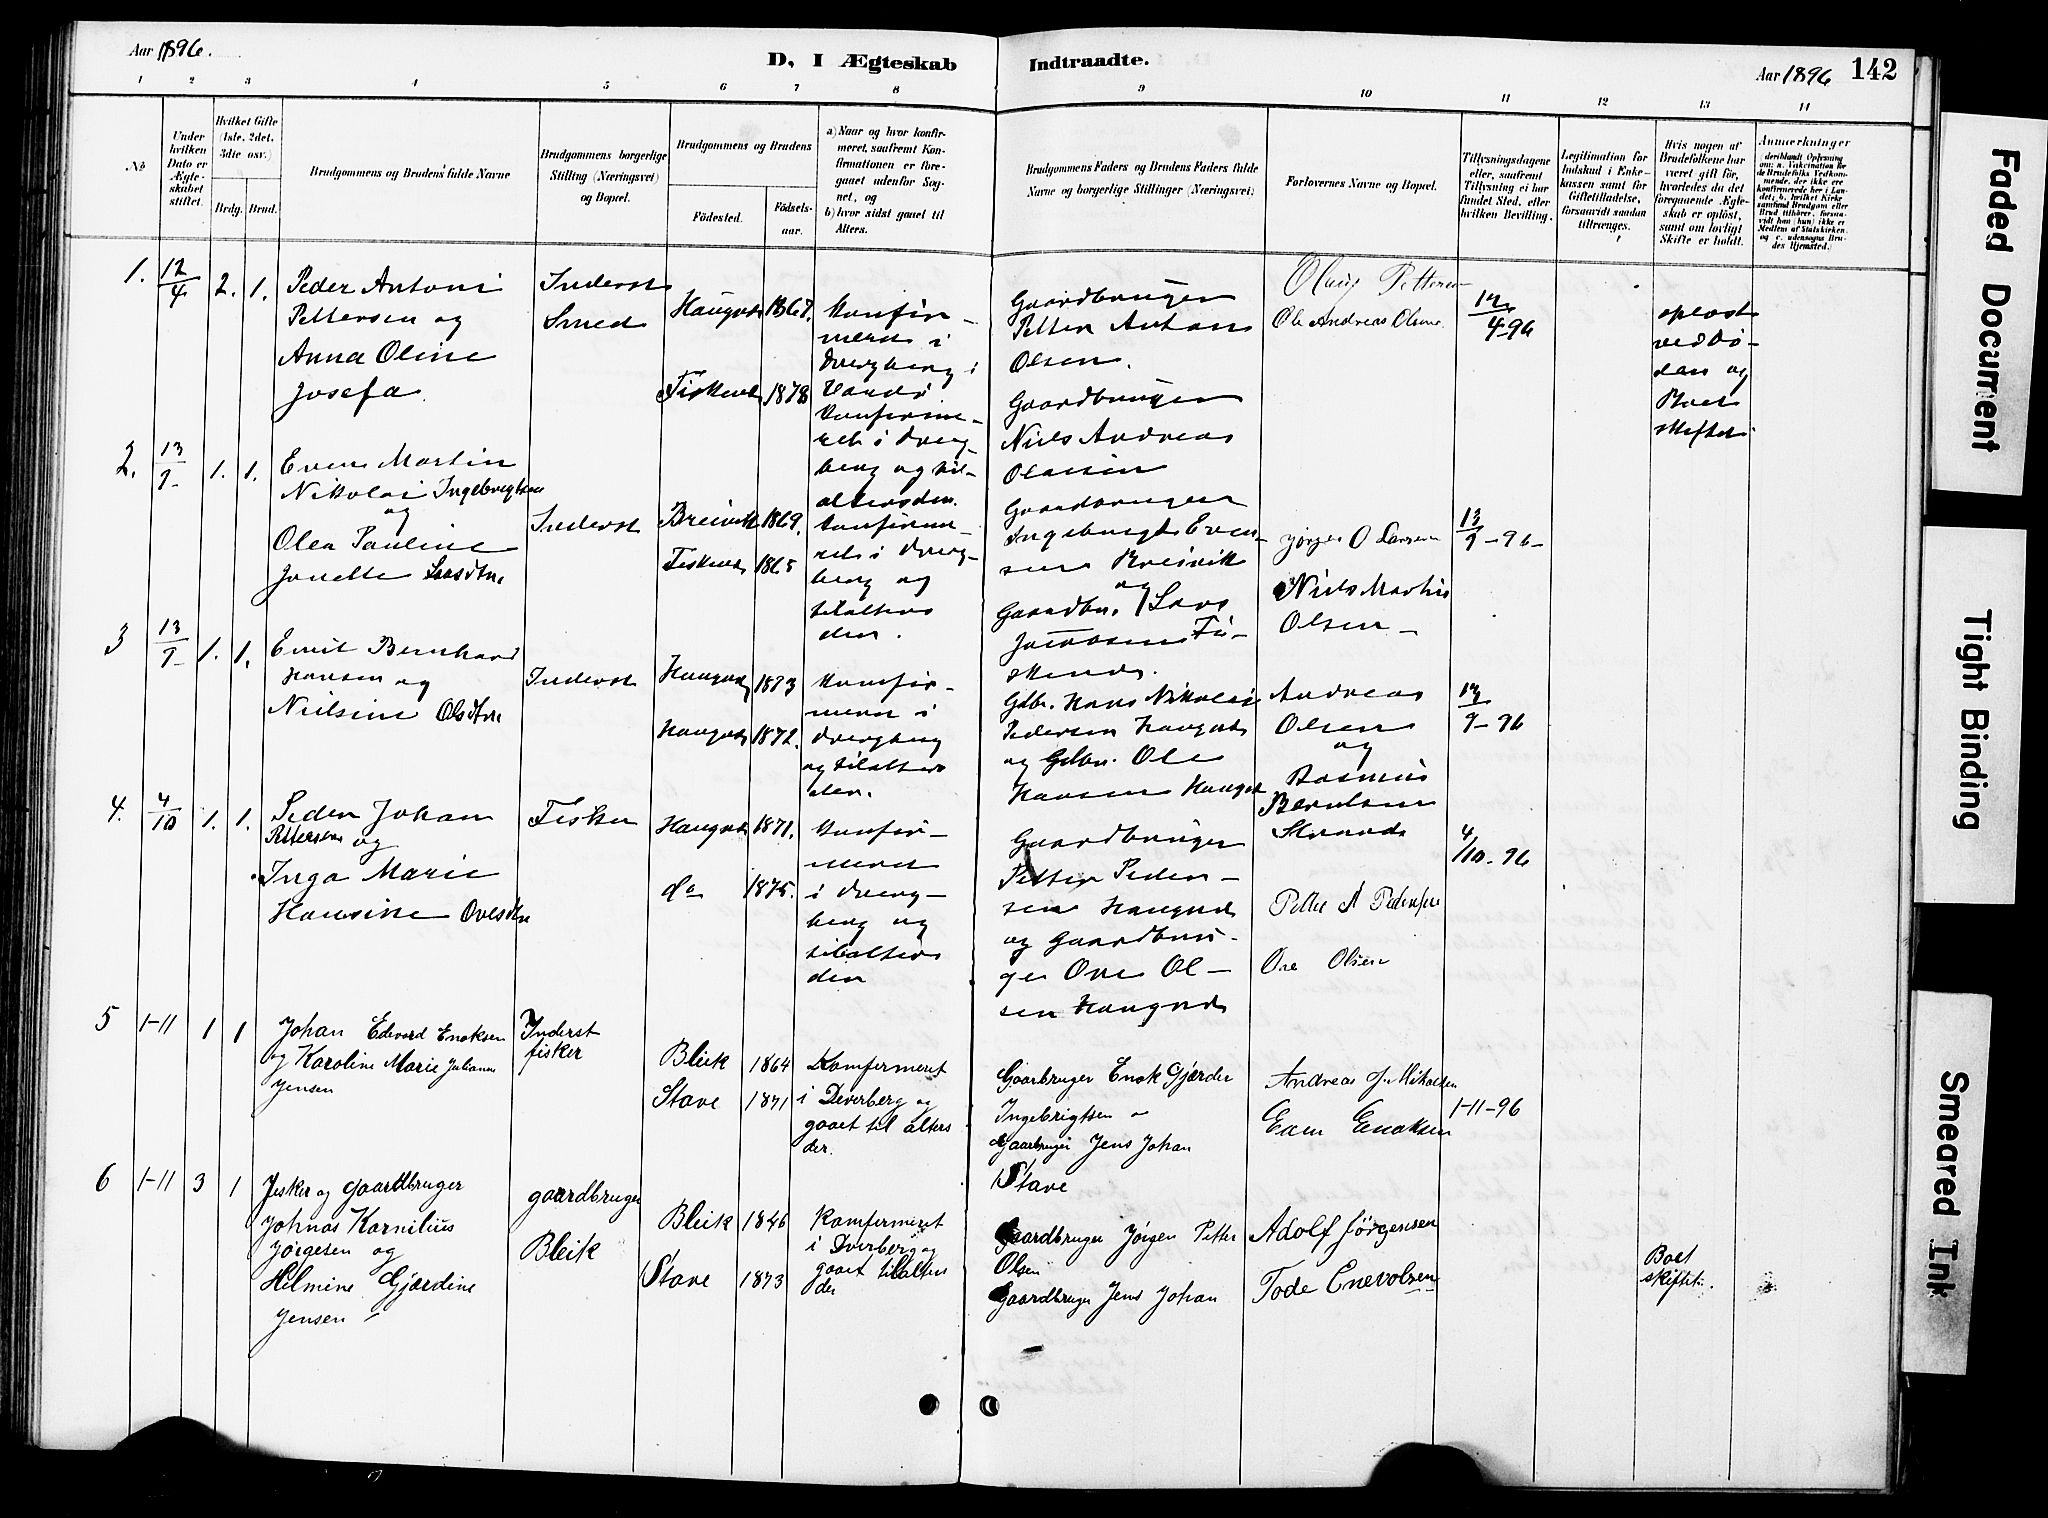 Aar 1896.
D, I Ægteskab Indtraadte.
Aar 1896 142
1 2 3 4 5 6 7 8 9 10 11 12 13 14
No
Under hvilken Dato er Ægteskabet stiftet.
Hvilket Gifte (1ste, 2det, 3die osv.)
Brdg. Brud.
Brudgommens og Brudens fulde Navne
Brudgommens borgerlige Stilling (Næringsvei) og Bopæl.
Brudgommens og Brudens
Födested.
Födsels-aar.
a) Naar og hvor konfirmeret, saafremt Konfirmationen er foregaaet udenfor Sognet, og
b) hvor sidst gaaet til Alters.
Brudgommens Faders og Brudens Faders fulde Navne og borgerlige Stillinger (Næringsvei).
Forlovernes Navne og Bopæl.
Tillysningsdagene eller, saafremt Tillysning ei har fundet Sted, efter hvilken Bevilling.
Legitimation for Indskud i Enkekassen samt for Giftetilladelse, forsaavidt saadan tiltrænges.
Hvis nogen af Brudefolkene har været gift för, hvorledes da det foregaaende Ægteskab er oplöst, samt om lovligt Skifte er holdt.
Anmerkninger
1. 12/4 2. 1.
Peder Antoni
Pettersen og
Anna Oline
Josefa.
Inderst
Smed
Haugnes 1867.
Fiskenes 1878
Konfir-
meret i
Dvergberg i
Konfirme-
ret i Dverg-
berg og til-
altersden.
Gaardbruger
Petter Anton
Olsen.
Gaardbruger
Niels Andreas
Olaisen
Pettersen
Ole Andreas Olsen
12/4-96
opløst
ved Dø-
den og
Boet
skiftet
2. 13/9- 1. 1.
Even Martin
Nikolai Ingebrigtsen
og
Olea Pauline
Jonette Larsdtr
Inderst
Breivik 1869.
Fiskenes 1865
Konfirme-
ret i Dverg-
berg og
tilalters
den.
Gaardbruger
Ingebrigt Even-
sen Breivik
og
Gaardbr. Lars
Jacobsen Fi-
skenes.
Jørgen O Larsen
Niels Martin
Olsen
13/9-96-
3 13/9- 1. 1.
Emil Bernhard
Hansen og
Nielsine Olsdtr
Inderst
Haugnes 1873
Haugnes 1872.
Konfir-
meret i
Dvergberg
og tilalters
den.
Gdbr. Hans Nikolai
Pedersen Haugnes
og Gdbr. Ole
Hansen Haugnes
Andreas
Olsen
og
Rasmus
Berntsen
13/9-96
4. 4/10 1. 1.
Peder Johan
Pettersen og
Inga Marie
Hansine Ovesdtr
Fisker
Haugnes 1871.
do 1875.
Konfir-
meret
i Dverg-
berg og
tilalters
den
Gaardbruger
Petter Peder-
sen Haugnes
og Gaardbru-
ger Ove Ol-
sen Haugnes
Petter A Pedersen
Ove Olsen
4/10-96
5 1-11 1 1
Johan Edevard Enoksen
og Karoline Marie Juliane
Jensen
Inderst
fisker
Bleik 1864
Stave 1871
Komfermeret
i Dverberg og
gaaet til alters
der.
Gaarbruger Enok Gjærder
Ingebrigtsen
Gaarbruger Jens Johan
Stave
Andreas J. Mikalsen
Even Enoksen
1-11-96
6 1-11 3 1
Fisker og gaardbruger
Johnas Kornilius
Jørgesen og
Hilmine Gjærdine
Jensen
gaardbruger
Bleik
Bleik 1846
Stave 1873
Komfermeret
i Dverberg og
gaaet tilalters
der
Gaardbruger Jørgen Petter
Olsen
Gaardbruger Jens Johan
Adolf Jørgensen
Tode Enevolsen
Boet
skiftet.
Faded Document
Tight Binding
Smeared Ink